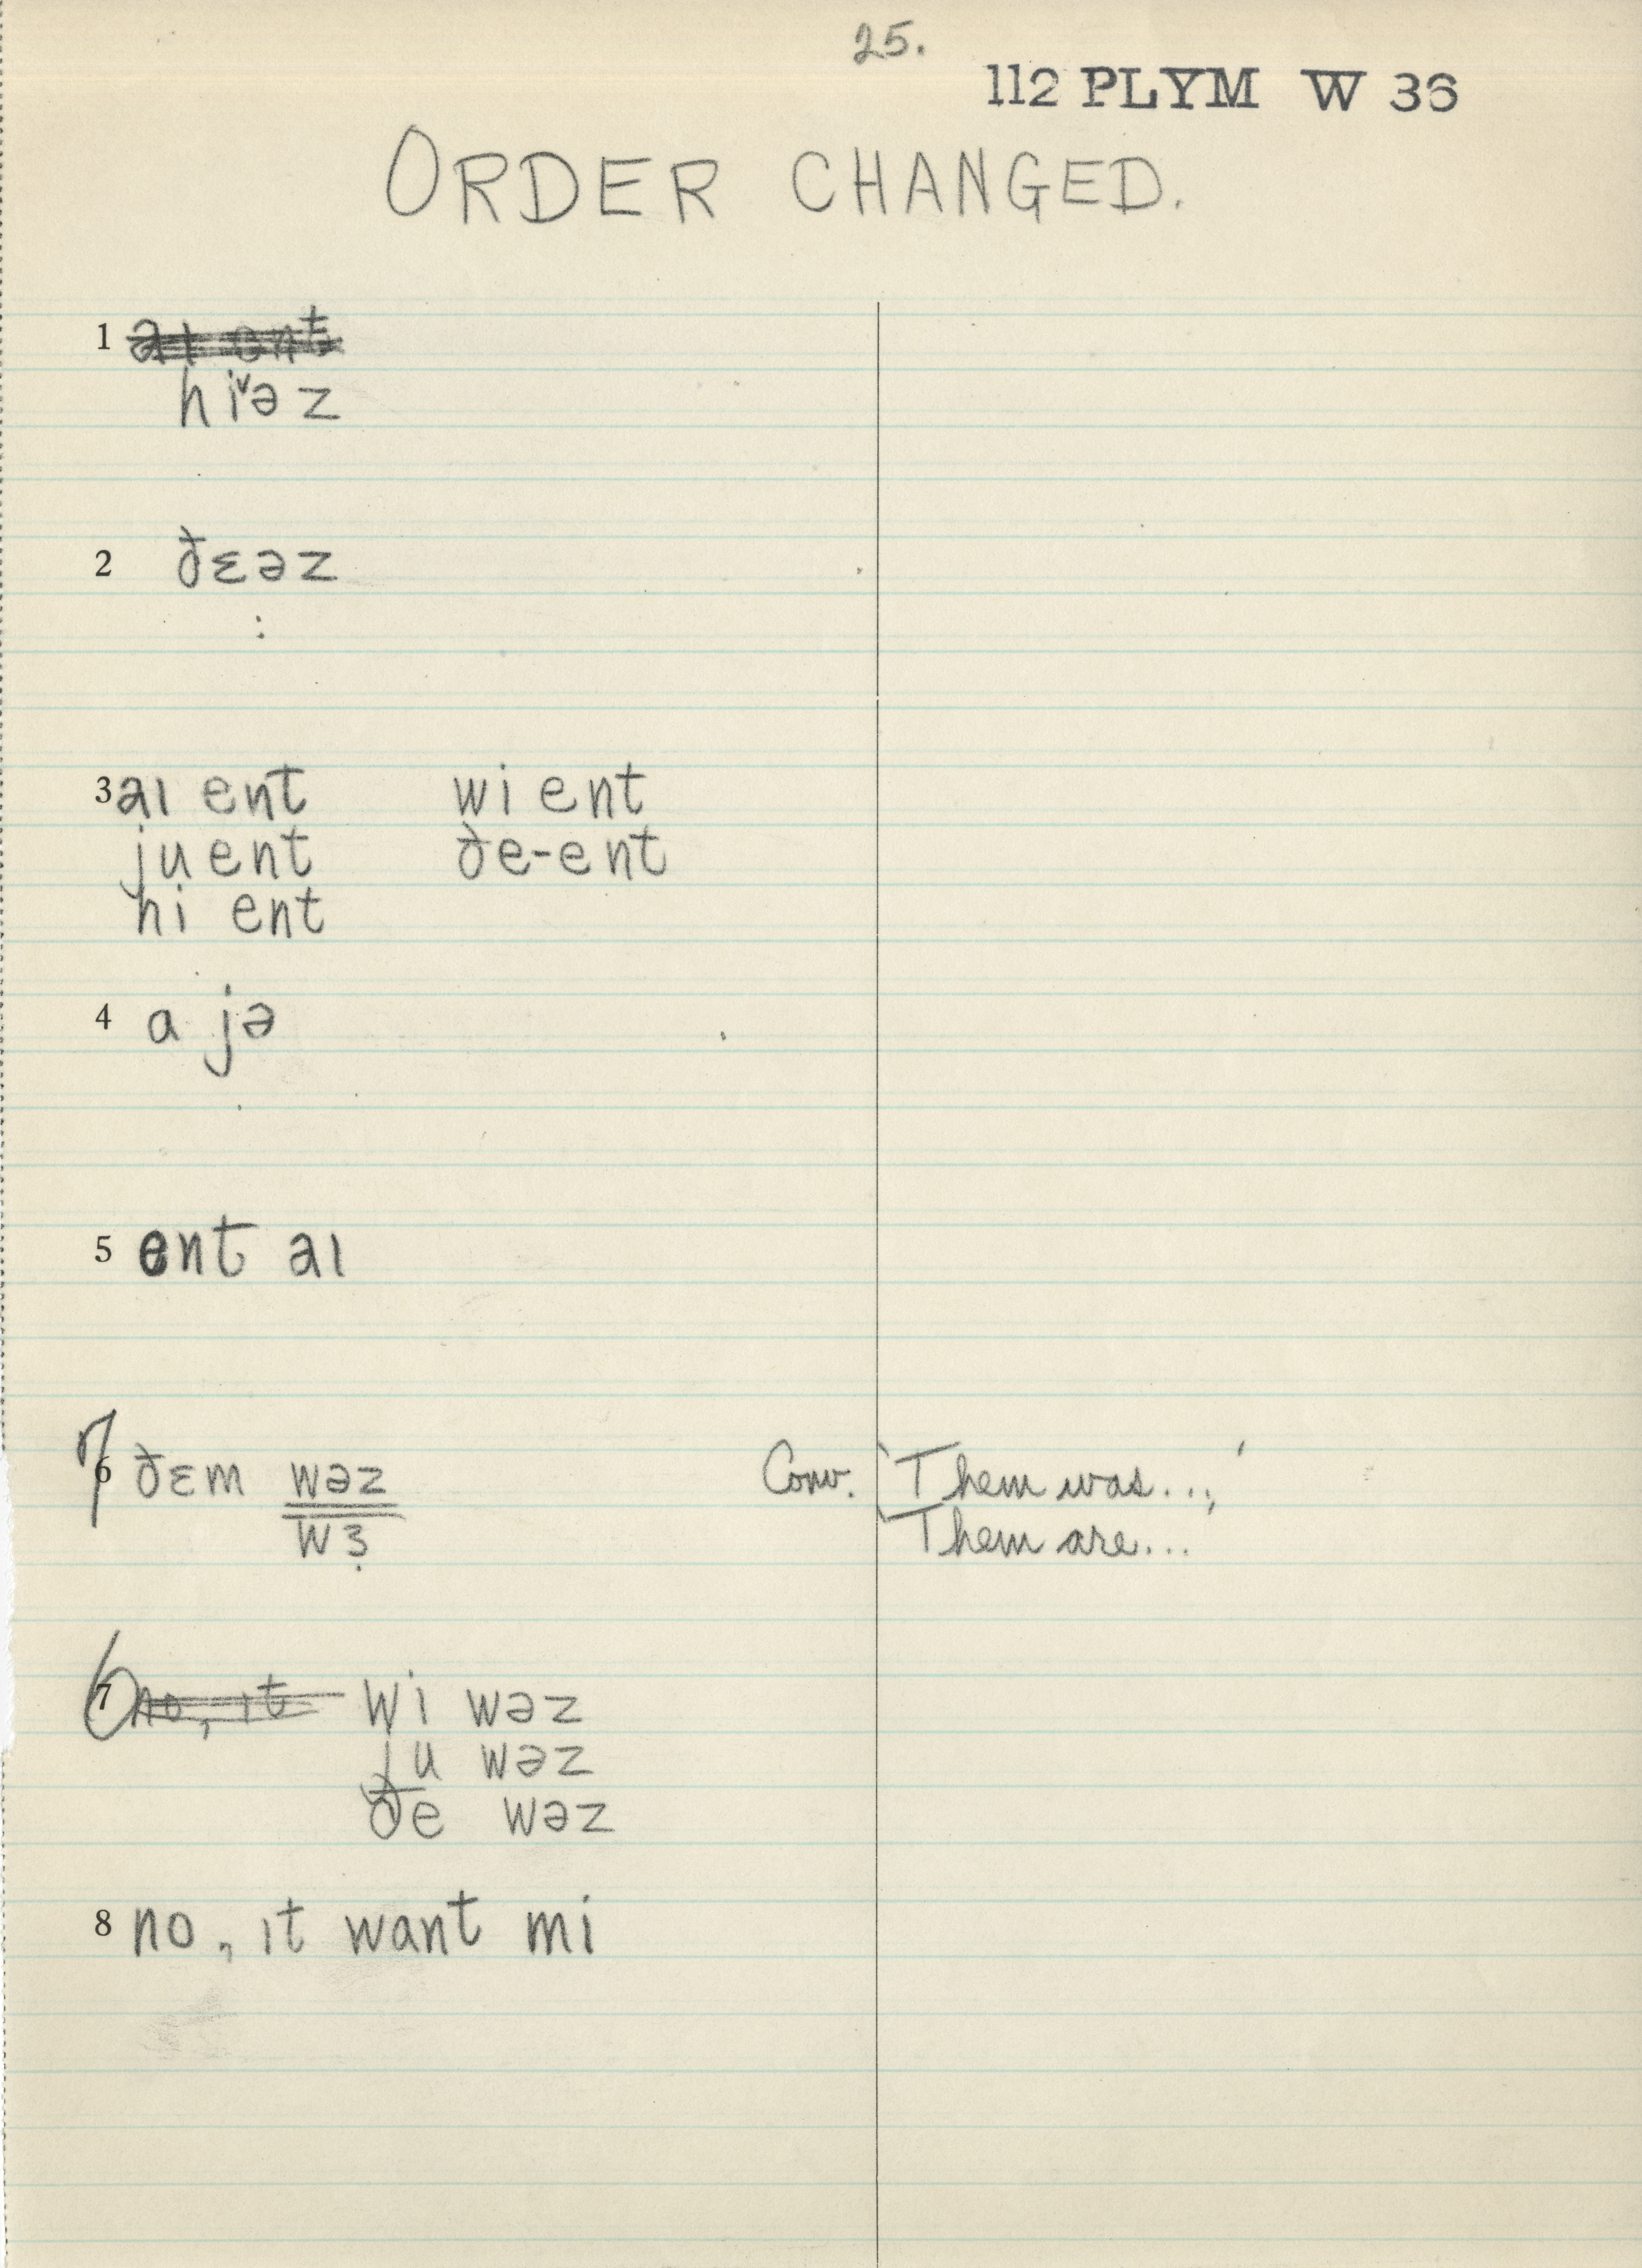 25.
112 PLYM W 36
ORDER CHANGED.
1 aɪ ent
hiˇəz
2 ðɛəz
:
3 aɪ ent wi ent
ju ent ðe-ent
hi ent
4 a jə
5 ent aɪ
7 6 ðɛm wəz Conv. 'Them was...,'
wɜ̣ 'Them are...
6 7 no, ɪt wi wəz
ju wəz
ðe wəz
8 no, ɪt want mi